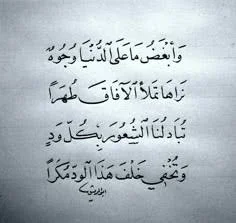 وَأَبْغَضُ مَا عَلَى الدُّنْيَا وُجُوهٌ
نَرَاهَا تَمْلَأُ الآفَاقَ طُهْرًا
تُبَادِلُنَا الشُّعُورَ بِكُلِّ وِدٍّ
وَتُخْفِي خَلْفَ هَذَا الوِدِّ مَكْرًا